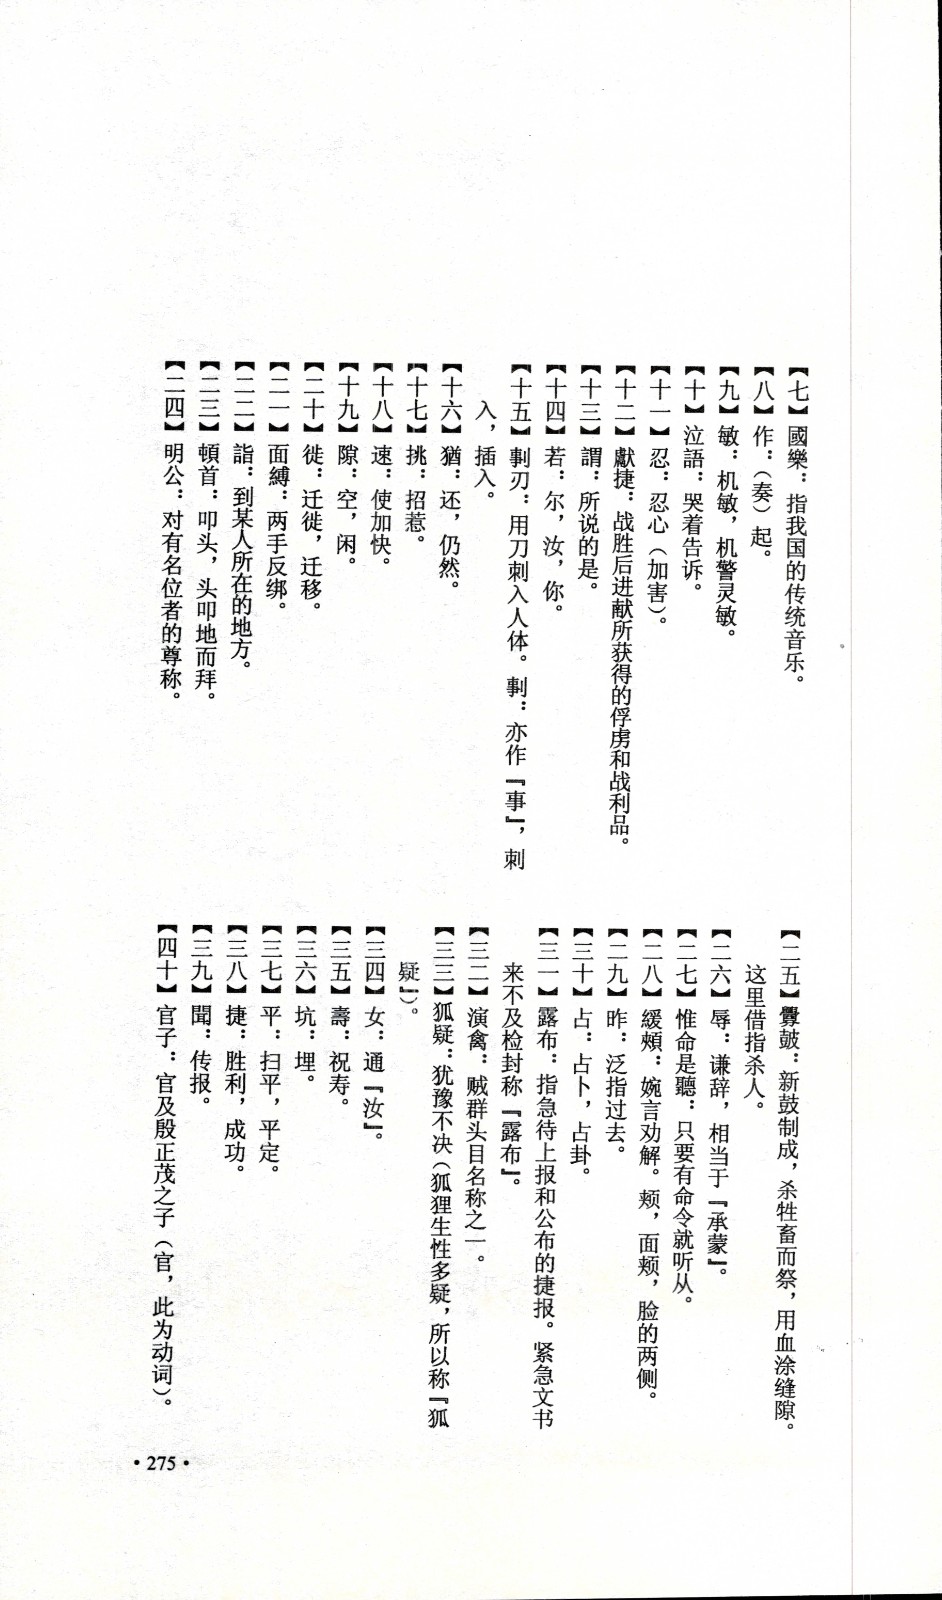 【七】國樂：指我国的传统音乐。
【八】作：（奏）起。
【九】敏：机敏，机警灵敏。
【十】泣語：哭着告诉。
【十一】忍：忍心（加害）。
【十二】獻捷：战胜后进献所获得的俘虏和战利品。
【十三】謂：所说的是。
【十四】若：尔，汝，你。
【十五】剚刃：用刀刺入人体。剚：亦作『事』，刺
入，插入。
【十六】猶：还，仍然。
【十七】挑：招惹。
【十八】速：使加快。
【十九】隙：空，闲。
【二十】徙：迁徙，迁移。
【二一】面縛：两手反绑。
【二二】詣：到某人所在的地方。
【二三】頓首：叩头，头叩地而拜。
【二四】明公：对有名位者的尊称。
【二五】釁鼓：新鼓制成，杀牲畜而祭，用血涂缝隙。
这里借指杀人。
【二六】辱：谦辞，相当于『承蒙』。
【二七】惟命是聽：只要有命令就听从。
【二八】緩頰：婉言劝解。颊，面颊，脸的两侧。
【二九】昨：泛指过去。
【三十】占：占卜，占卦。
【三一】露布：指急待上报和公布的捷报。紧急文书
来不及检封称『露布』。
【三二】演禽：贼群头目名称之一。
【三三】狐疑：犹豫不决（狐狸生性多疑，所以称『狐
疑』）。
【三四】女：通『汝』。
【三五】壽：祝寿。
【三六】坑：埋。
【三七】平：扫平，平定。
【三八】捷：胜利，成功。
【三九】聞：传报。
【四十】官子：官及殷正茂之子（官，此为动词）。
·275·